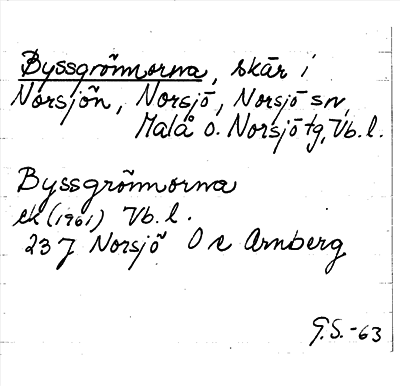 Byssgrönnorna, skär i
Norsjön, Norsjö, Norsjö sn,
Malå o. Norsjö tg, Vb. l.
Byssgrönnorna
ek (1961) Vb. l.
23 J Norsjö O c Arnberg
G.S.-63